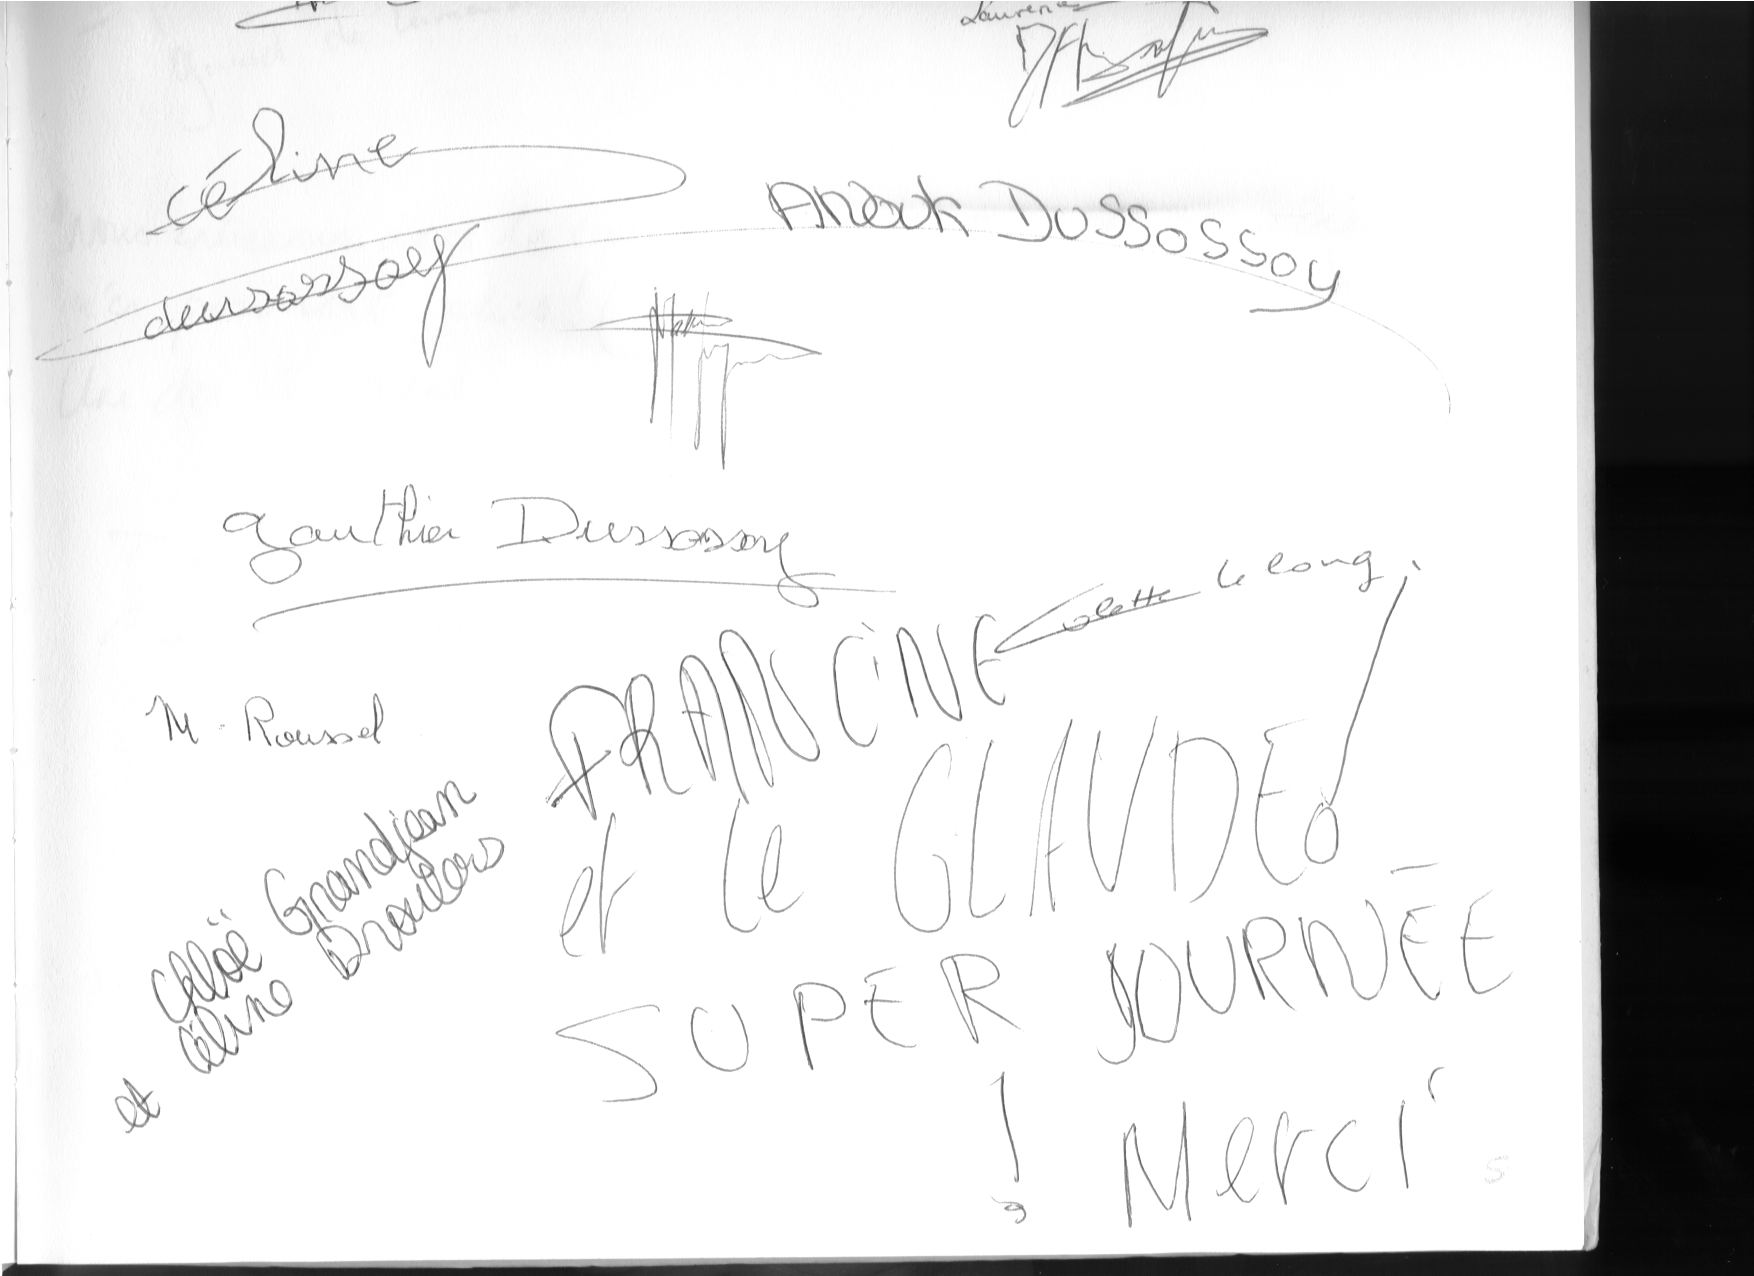 Laurence
céline
dussossoy
Anouk Dussossoy
gauthier Dussossoy
Colette Le Long
M. Roussel
FRANCINE
et Le GLAUDE!
SUPER JOURNÉE
! Merci
Chloë Grandjean
et Céline Droulers
5